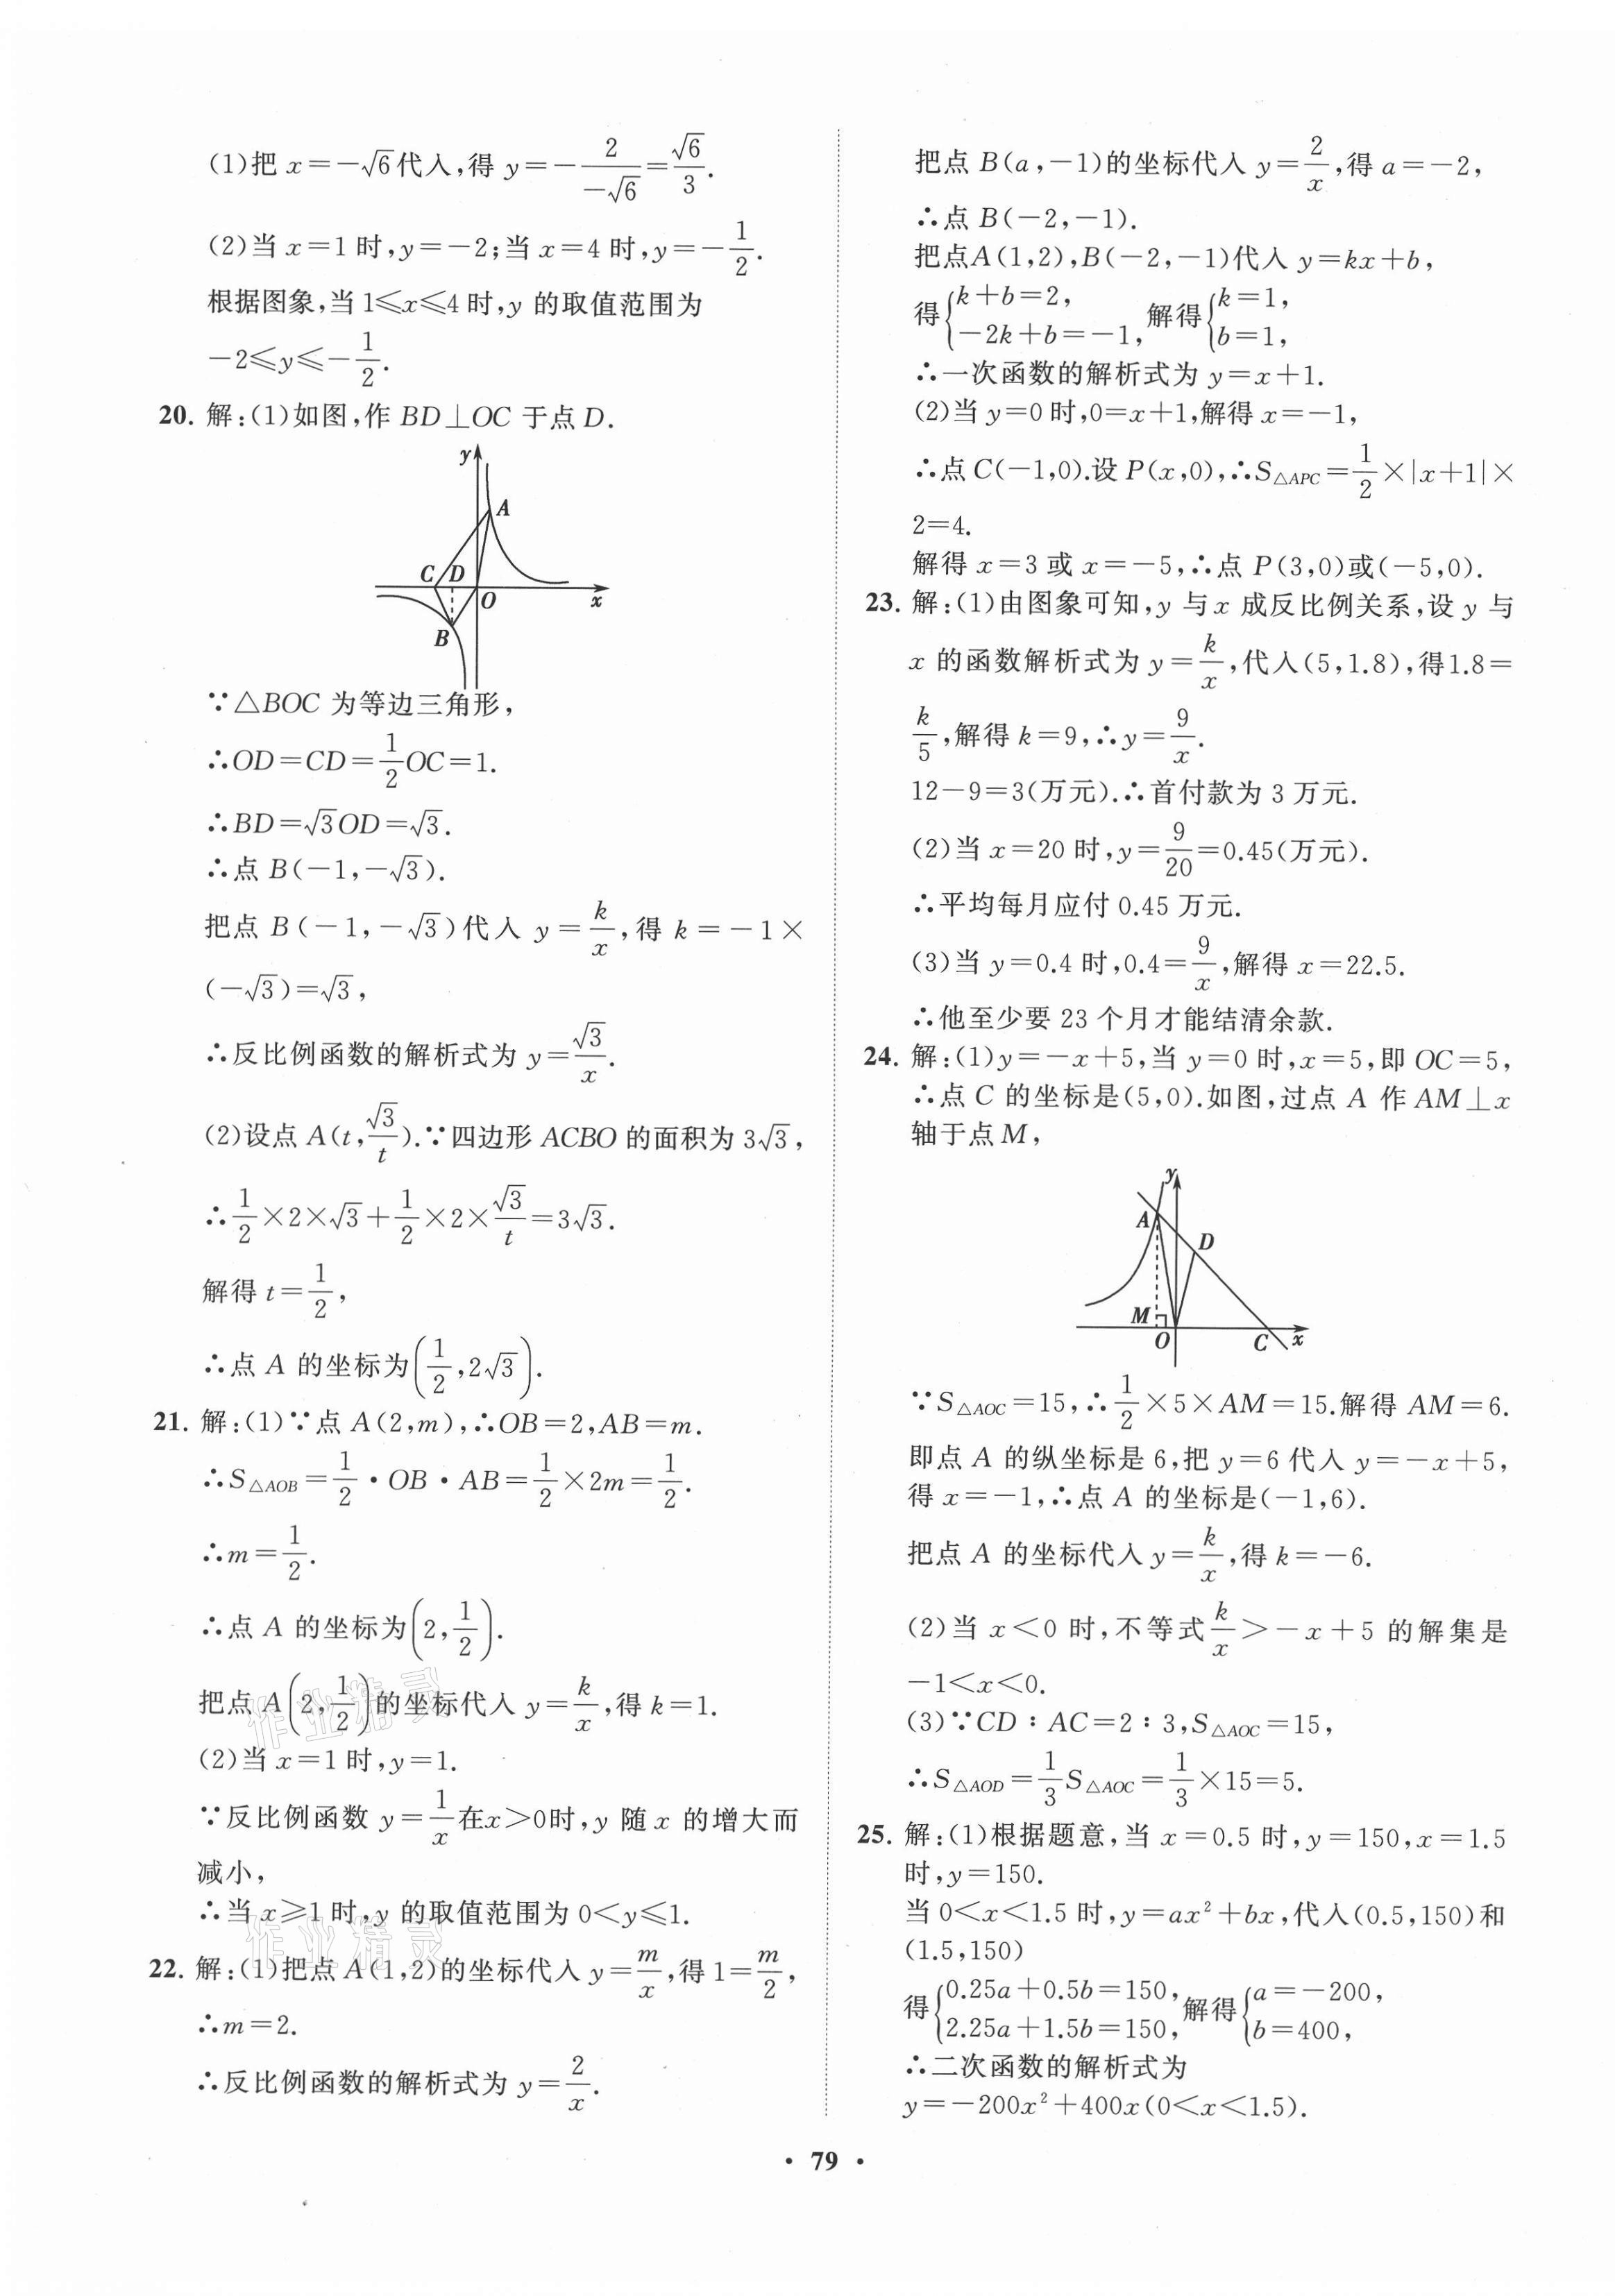 (1)把 x=-√6代入,得 y=-2/(-√6)=√6/3.
(2)当 x=1 时,y=-2;当 x=4 时,y=-1/2.
根据图象,当 1≤x≤4 时,y 的取值范围为
-2≤y≤-1/2.
20. 解:(1)如图,作 BD⊥OC 于点 D.
y
A
C D
O
x
B
∵△BOC 为等边三角形,
∴OD=CD=1/2OC=1.
∴BD=√3OD=√3.
∴点 B(-1,-√3).
把点 B(-1,-√3)代入 y=k/x,得 k=-1×
(-√3)=√3,
∴反比例函数的解析式为 y=√3/x.
(2)设点 A(t,√3/t).∵四边形 ACBO 的面积为 3√3,
∴1/2×2×√3+1/2×2×√3/t=3√3.
解得 t=1/2,
∴点 A 的坐标为(1/2,2√3).
21. 解:(1)∵点 A(2,m),∴OB=2,AB=m.
∴S△AOB=1/2·OB·AB=1/2×2m=1/2.
∴m=1/2.
∴点 A 的坐标为(2,1/2).
把点 A(2,1/2)的坐标代入 y=k/x,得 k=1.
(2)当 x=1 时,y=1.
∵反比例函数 y=1/x在x>0时,y 随 x 的增大而
减小,
∴当 x≥1 时,y 的取值范围为 0<y≤1.
22. 解:(1)把点 A(1,2)的坐标代入 y=m/x,得1=m/2,
∴m=2.
∴反比例函数的解析式为 y=2/x.
把点 B(a,-1)的坐标代入 y=2/x,得 a=-2,
∴点 B(-2,-1).
把点A(1,2),B(-2,-1)代入 y=kx+b,
得{k+b=2, -2k+b=-1, 解得{k=1, b=1,
∴一次函数的解析式为 y=x+1.
(2)当 y=0 时,0=x+1,解得 x=-1,
∴点 C(-1,0).设 P(x,0),∴S△APC=1/2×|x+1|×
2=4.
解得 x=3 或 x=-5,∴点 P(3,0)或(-5,0).
23. 解:(1)由图象可知,y 与 x 成反比例关系,设 y 与
x 的函数解析式为 y=k/x,代入(5,1.8),得1.8=
k/5,解得 k=9,∴y=9/x.
12-9=3(万元).∴首付款为 3 万元.
(2)当 x=20 时,y=9/20=0.45(万元).
∴平均每月应付 0.45 万元.
(3)当 y=0.4 时,0.4=9/x,解得 x=22.5.
∴他至少要 23 个月才能结清余款.
24. 解:(1)y=-x+5,当 y=0 时,x=5,即 OC=5,
∴点 C 的坐标是(5,0).如图,过点 A 作 AM⊥x
轴于点 M,
y
A
D
M
O
C x
∵S△AOC=15,∴1/2×5×AM=15.解得 AM=6.
即点 A 的纵坐标是 6,把 y=6 代入 y=-x+5,
得 x=-1,∴点 A 的坐标是(-1,6).
把点 A 的坐标代入 y=k/x,得 k=-6.
(2)当 x<0 时,不等式k/x>-x+5 的解集是
-1<x<0.
(3)∵CD∶AC=2∶3,S△AOC=15,
∴S△AOD=1/3S△AOC=1/3×15=5.
25. 解:(1)根据题意,当 x=0.5 时,y=150,x=1.5
时,y=150.
当 0<x<1.5 时,y=ax²+bx,代入(0.5,150)和
(1.5,150)
得{0.25a+0.5b=150, 2.25a+1.5b=150, 解得{a=-200, b=400,
∴二次函数的解析式为
y=-200x²+400x(0<x<1.5).
· 79 ·
作业精灵
作业精灵